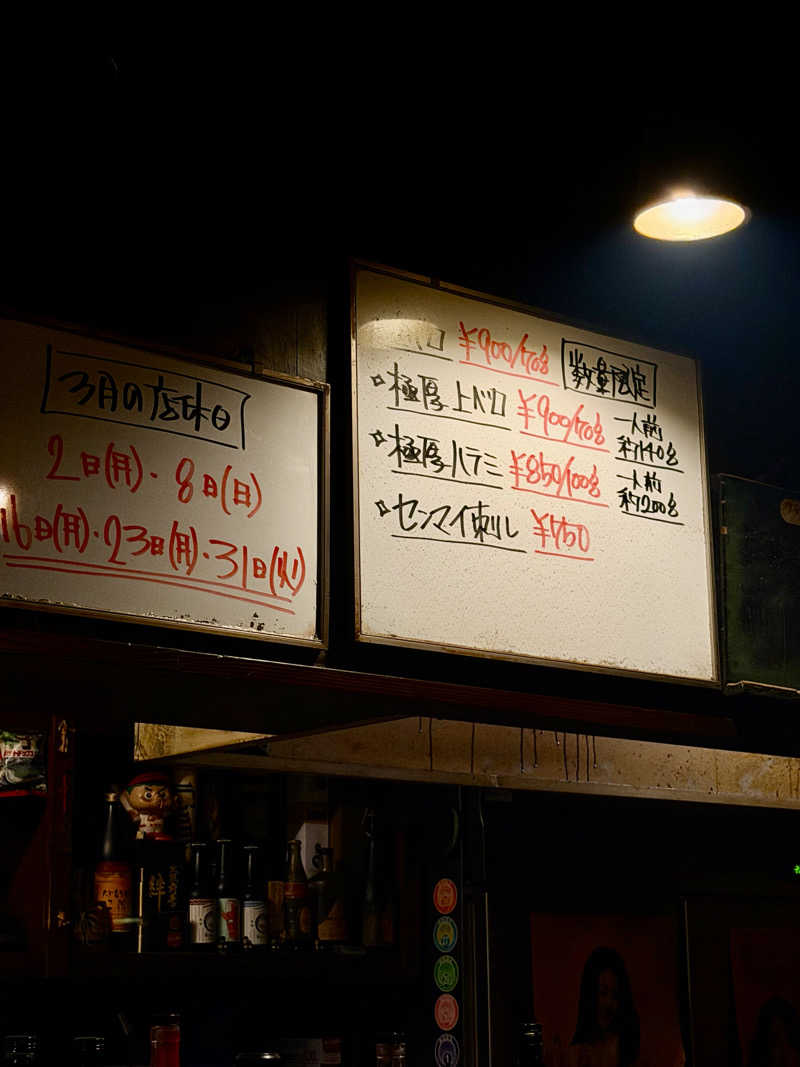 3月の店休日
2日(月)・8日(日)
16日(月)・23日(月)・31日(火)
¥900/70g
数量限定
極厚上ベロ ¥900/70g 一人前 約140g
極厚ハラミ ¥850/100g 一人前 約200g
センマイ刺し ¥750
絆